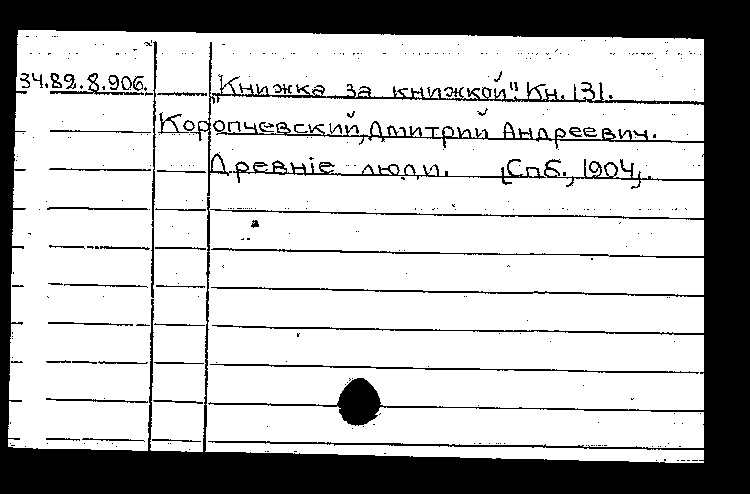 34.89.8.906. „Книжка за книжкой". Кн. 131.
Коропчевский, Дмитрий Андреевич.
Древніе люди. [Спб., 1904].